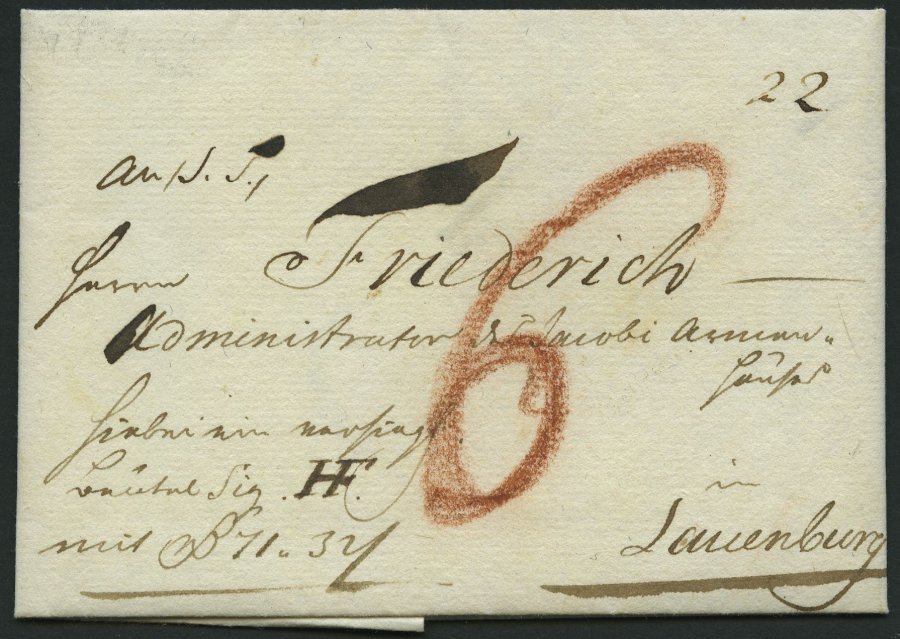 22
An S. T.,
Herrn Friederich
Administrator des Jacobi Armen=
häuses
hiebei ein versieg.
beutel Sig. HF.
mit 71.. 32
in
Lauenburg
6